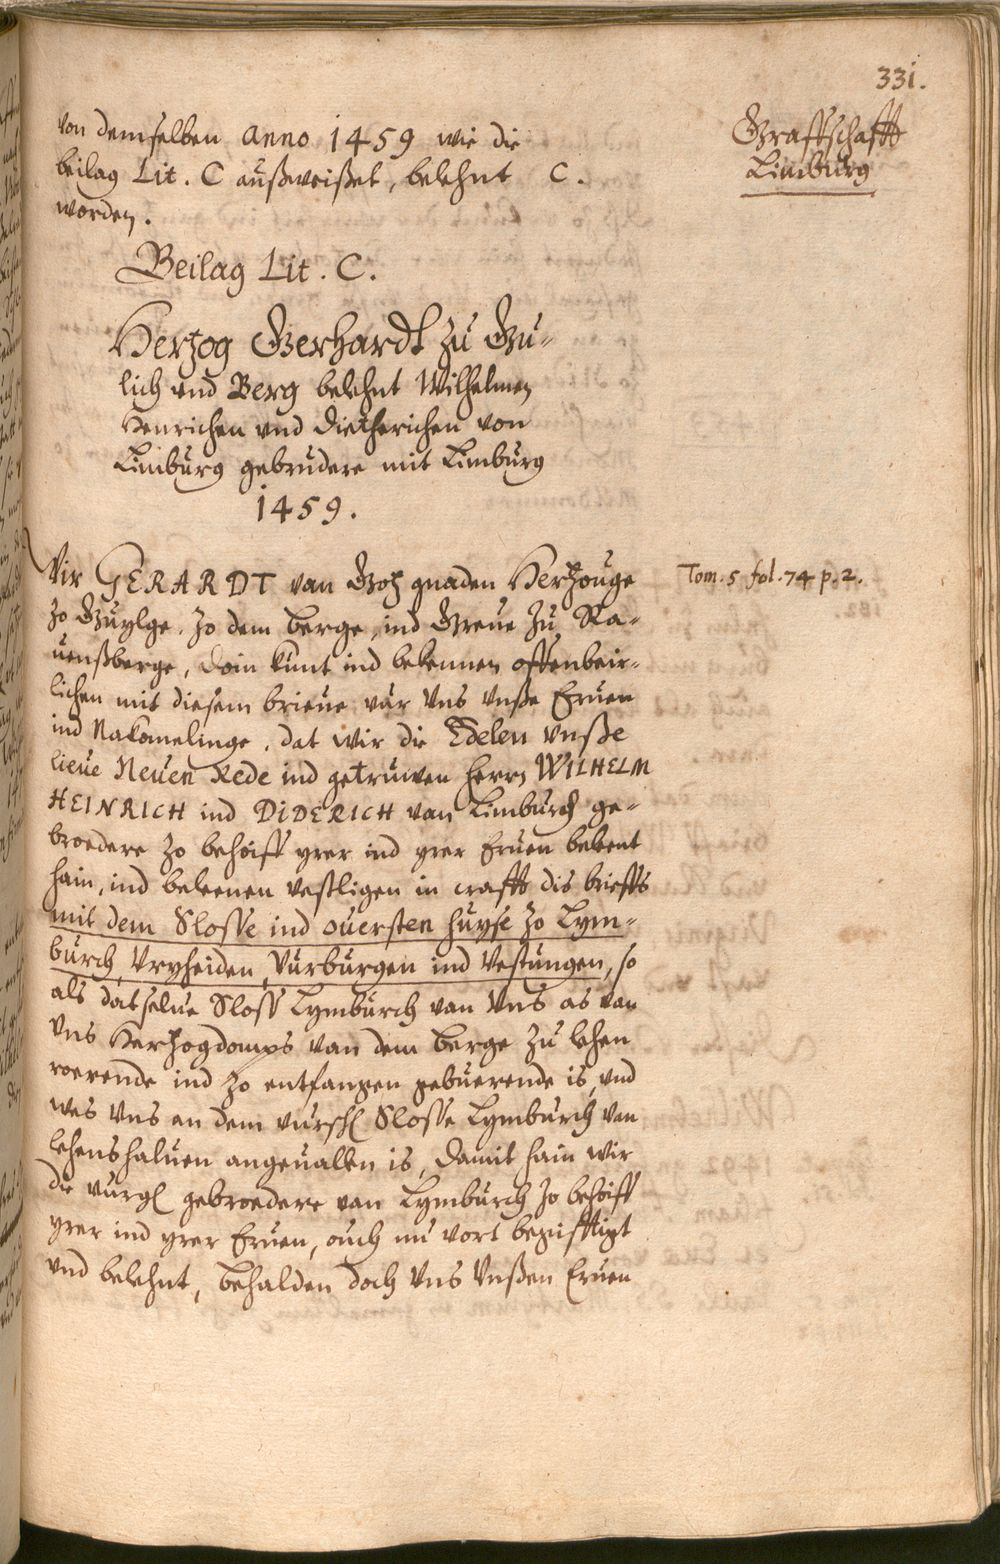 331.
Graffschafft
Limburg
von demselben Anno 1459 wie die
beilag Lit. C außweißet, belehnt C.
worden.
Beilag Lit. C.
Hertzog Gerhardt zu Gu-
lich und Berg belehnt Wilhelmen
Henrichen und Dietherichen von
Limburg gebrudere mit Limburg
1459.
Wir GERARDT van Gotz gnaden Hertzouge
zo Guylge, zo dem Berge, ind Greue zu Ra-
uenßberge, doin kunt ind bekennen offenbair-
lichen mit diesem brieue vur Uns Unße Eruen
ind Nakomelinge, dat wir die Edelen Unße
lieue Neuen Rede ind getruwen herrn WILHELM
HEINRICH ind DIDERICH van Limburch ge-
broedere zo behoiff yrer ind yrer Eruen beleent
hain, ind beleenen vestligen in crafft dis brieffs
mit dem Slosse ind ouersten huyse zo Lym-
burch, Vryheiden, Vurburgen ind Vestungen, so
als datselue Sloss Lymburch van Uns as van
Uns Hertzogdomps van dem Berge zu lehen
roerende ind zo entfangen gebuerende is, und
wes Uns an dem vursch Slosse Lymburch van
lehenshaluen angeuallen is, damit hain wir
die vurg gebroedere van Lymburch zo behoiff
yrer ind yrer Eruen, ouch nu vort begifftigt
und belehnt, behalden doch Uns Unßen Eruen
Tom. 5 fol. 74 p. 2.